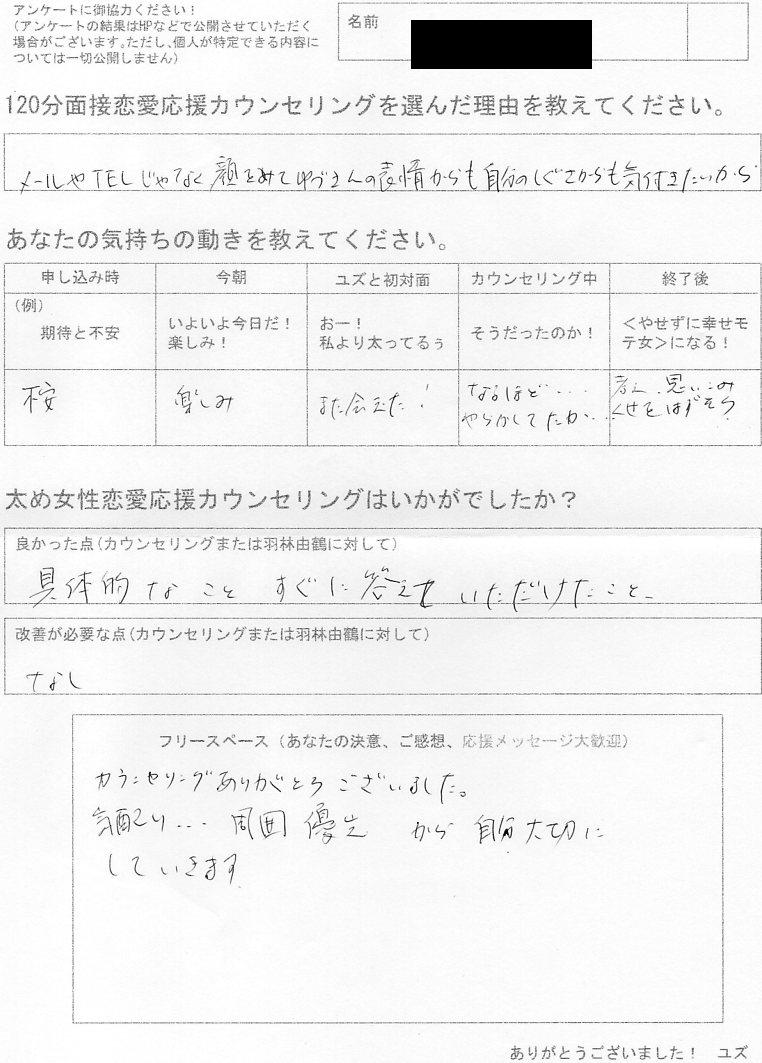 アンケートに御協力ください！
（アンケートの結果はHPなどで公開させていただく
場合がございます。ただし、個人が特定できる内容に
ついては一切公開しません）
名前
120分面接恋愛応援カウンセリングを選んだ理由を教えてください。
メールやTELじゃなく顔をみてゆづさんの表情からも自分のしぐさからも気付きたいから
あなたの気持ちの動きを教えてください。
申し込み時 今朝 ユズと初対面 カウンセリング中 終了後
（例）
期待と不安 いよいよ今日だ！ おー！ そうだったのか！ ＜やせずに幸せモ
楽しみ！ 私より太ってるぅ テ女＞になる！
不安 楽しみ また会えた！ なるほど... 思いこみ
やらかしてたか... くせをはずそう
太め女性恋愛応援カウンセリングはいかがでしたか？
良かった点（カウンセリングまたは羽林由鶴に対して）
具体的なこと すぐに答えていただけたこと
改善が必要な点（カウンセリングまたは羽林由鶴に対して）
なし
フリースペース（あなたの決意、ご感想、応援メッセージ大歓迎）
カウンセリングありがとうございました。
気配り... 周囲優先 から 自分大切に
していきます
ありがとうございました！ ユズ